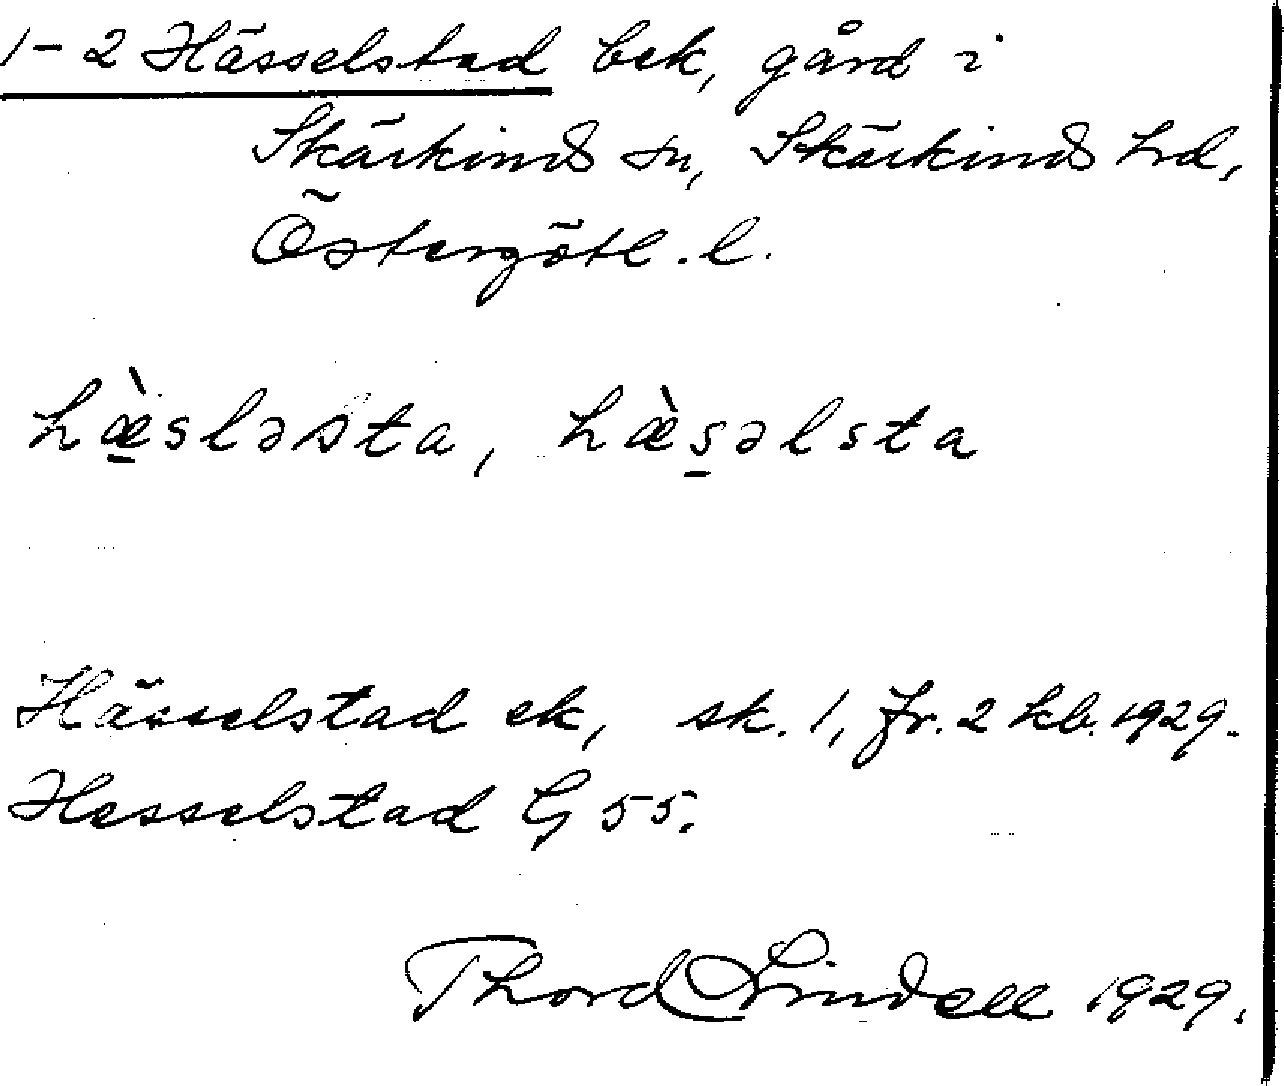 1-2 Hässelstad bek, gård i
Skärkinds sn, Skärkinds hd,
Östergötl. l.
hæ̠̀sləsta, hæ̀s̠əlsta
Hässelstad ek, sk. 1, fr. 2 hb. 1929.
Hesselstad G 55.
Thord Lindell 1929.